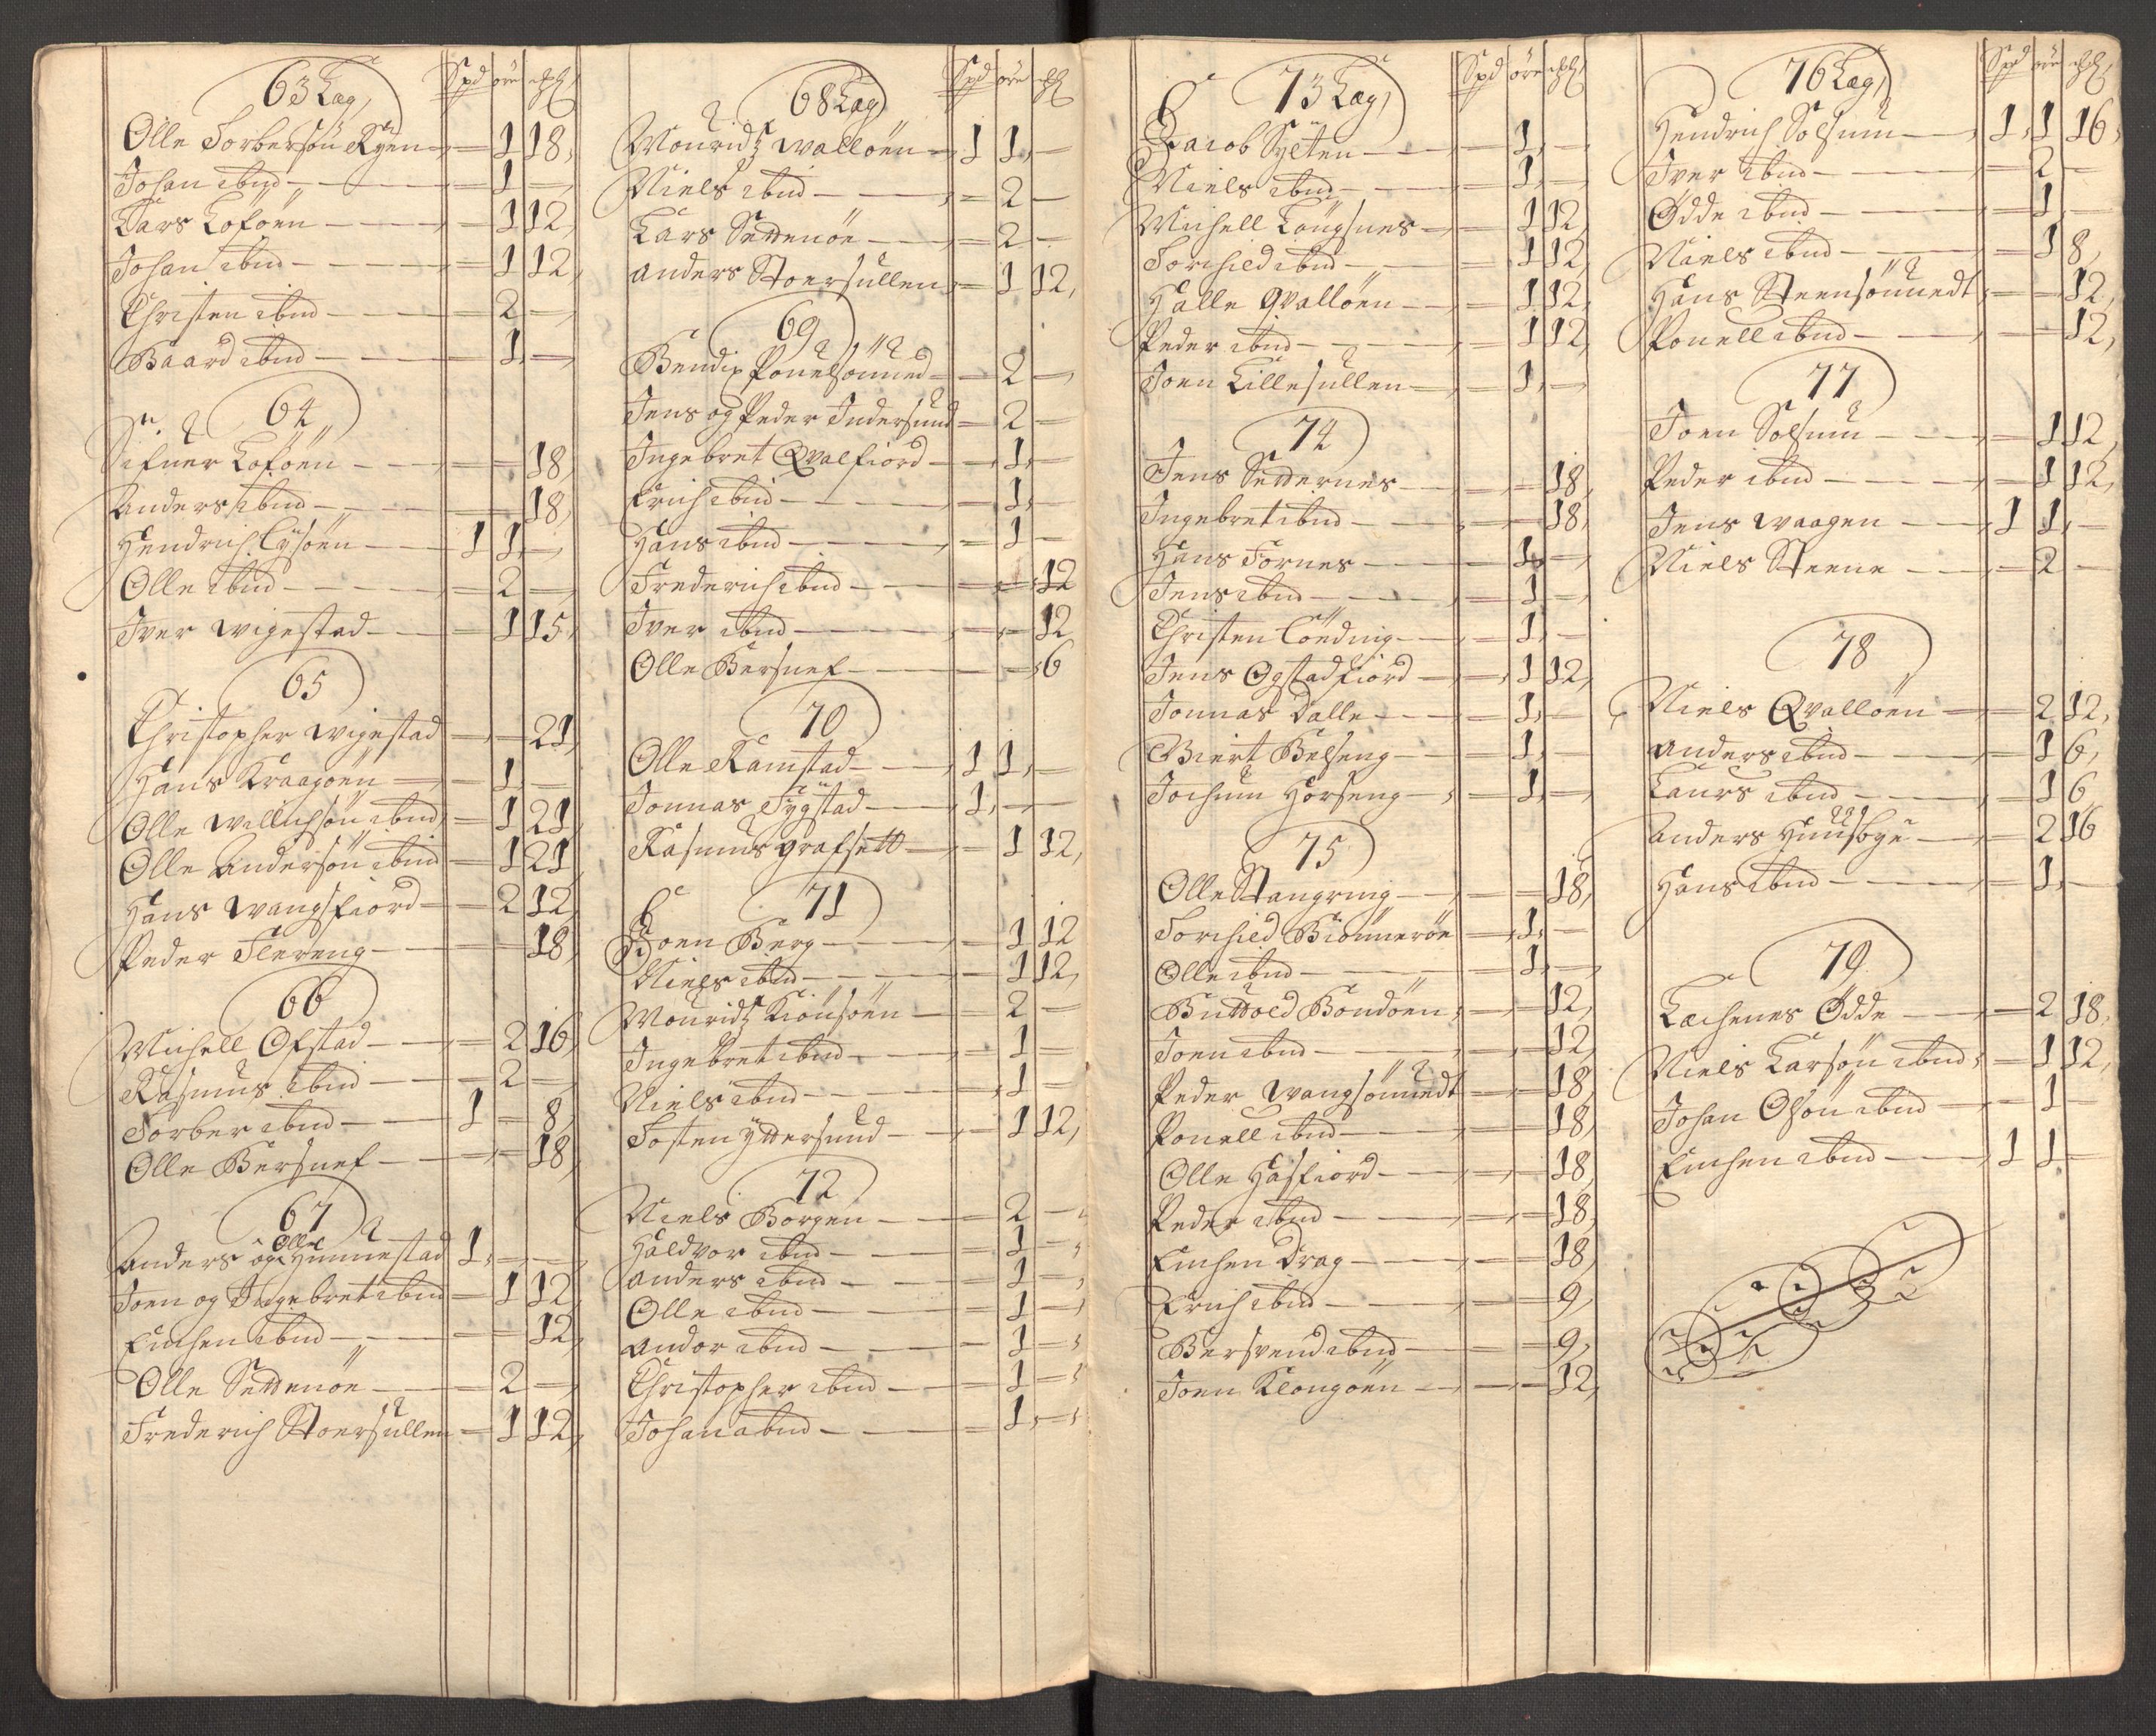 63 Læg, Spd öre
Olle Torbersön Ryen 1 18,
Johan ibid 1
Lars Loföen 1 12,
Johan ibid 1 12,
Christen ibid 2
Baard ibid 1,
64
Sifuer Loföen 18,
Anders ibid 18,
Hendrich Lysöen 1 1,
Olle ibid 2
Iver Wigestad 1 15,
65
Christopher Wigestad 21,
Hans Kraagöen 1,
Olle Willichsön ibid 1 21,
Olle Andersön ibid 1 21,
Hans Wangsfiord 2 12,
Peder Flereng 18,
66
Michell Ofstad 2 16,
Rasmus ibid 2
Torber ibid 1 8,
Olle Bersnef 18,
67
Anders og Olle Hunnestad 1,
Joen og Ingebret ibid 1 12,
Einchen ibid 12,
Olle Settenöe 2
Frederich Stoersullen 1 12,
68 Læg Spd öre
Mouridz Walloën 1 1,
Niels ibid 2
Lars Settenöe 2
Anders Stoersullen 1 12,
69
Bendix Pouelsönned 2
Jens og Peder Indersund 2
Ingebret Qvalfiord 1,
Erich ibid 1,
Hans ibid 1
Frederich ibid 12
Iver ibid 12
Olle Bersnef 6
70
Olle Ramstad 1 1,
Jonnas Sygstad 1,
Rasmus Grafsett 1 12,
71
Joen Berg 1 12
Niels ibid 1 12,
Mouridz Kiönsöen 2
Ingebret ibid 1
Niels ibid 1
Tosten Yttersund 1 12,
72
Niels Borgen 2
Haldvor ibid 1
Anders ibid 1
Olle ibid 1
Andor ibid 1
Christopher ibid 1
Johan ibid 1,
73 Læg, Spd öre
Jacob Sylten 1,
Niels ibid 1,
Michell Löugsnes 1 12,
Torchild ibid 1 12,
Halle Qvallöen 1 12,
Peder ibid 1 12,
Joen Lillesullen 1,
74
Jens Setternes 18,
Ingebret ibid 18,
Hans Fornes 1,
Jens ibid 1
Christen Löeding 1,
Jens Ogstadfiord 1 12,
Jonnas Dalle 1,
Giert Belseng 1,
Jochum Horseng 1,
75
Olle Stangring 18,
Torchild Biönneröe 1,
Olle ibid 1,
Buttold Bondöen 12,
Joen ibid 12,
Peder Wangsönnedt 18,
Pouell ibid 18,
Olle Hasfiord 18,
Peder ibid 18,
Einchen Drag 18,
Erich ibid 9,
Bersvend ibid 9,
Joen Klongöen 12,
76 Læg, Spd öre
Hendrich Solsum 1, 1 16,
Iver ibid 2
Odde ibid 1
Niels ibid 1 8,
Hans Steensönnedt 12,
Pouell ibid 12,
77
Joen Solsum 1 12,
Peder ibid 1 12,
Jens Waagen 1 1,
Niels Steene 2
78
Niels Qvallöen 2 12,
Anders ibid 1 6,
Laurs ibid 1 6
Anders Huusbye 2 16
Hans ibid 1,
79
Lechenes Odde 2 18,
Niels Larsön ibid 1 12,
Johan Olsön ibid 1
Einchen ibid 1 1